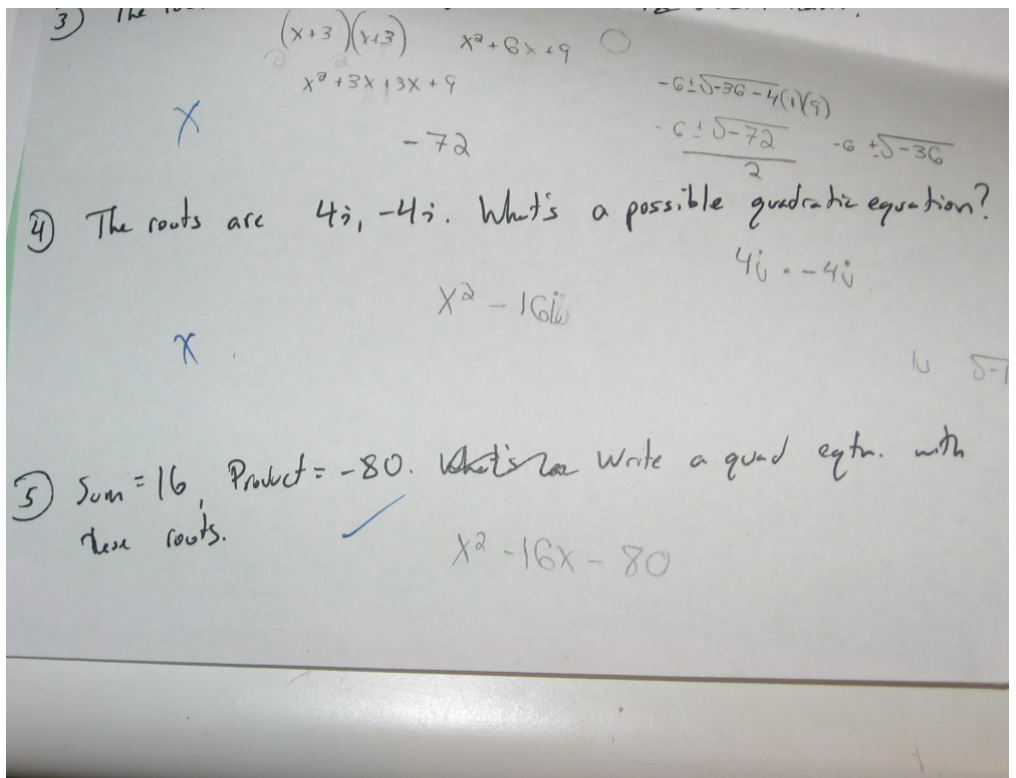 3) The
(x+3)(x+3) x² + 6x + 9
x² + 3x + 3x + 9
-6 ± √-36 - 4(1)(9)
x
-72
-6 ± √-72 -6 ± √-36
2
4) The roots are 4i, -4i. What's a possible quadratic equation?
4i · -4i
x² - 16i
x
√-1
5) Sum = 16, Product = -80. Write a quad eqtn. with
these roots.
x² - 16x - 80